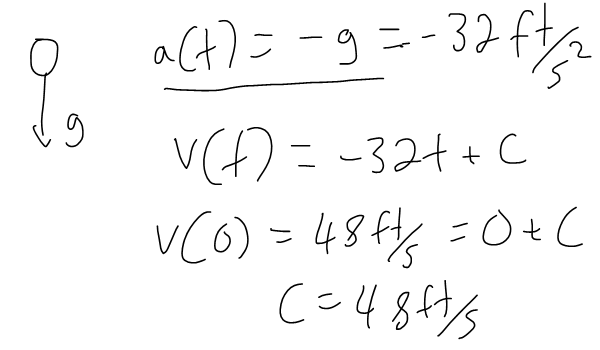 a(t) = -g = -32 ft/s²
g
v(t) = -32t + C
v(0) = 48 ft/s = 0 + C
C = 48 ft/s